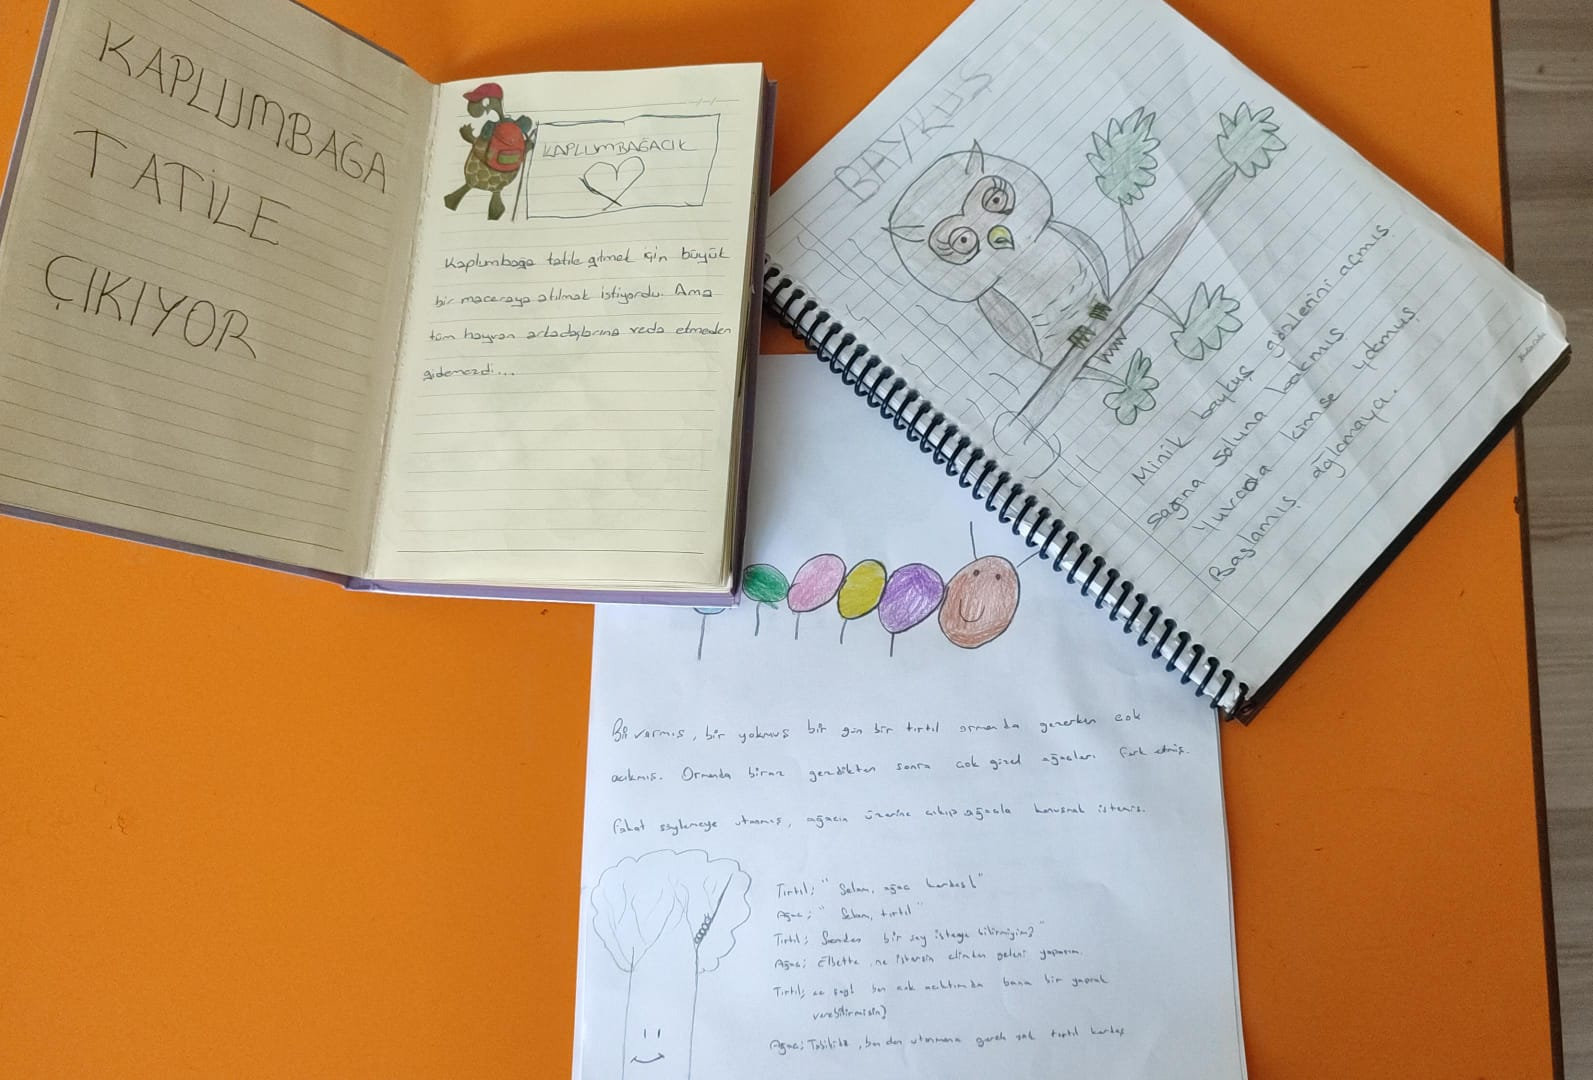 KAPLUMBAĞA
TATİLE
ÇIKIYOR
KAPLUMBAĞACIK
Kaplumbağa tatile gitmek için büyük
bir maceraya atılmak istiyordu. Ama
tüm hayvan arkadaşlarına veda etmeden
gidemezdi...
BAYKUŞ
Minik baykuş gözlerini açmış
Sağına Soluna bakmış
Yuvada kimse yokmuş
Başlamış ağlamaya.
Bir varmış, bir yokmuş bir gün bir tırtıl ormanda gezerken çok
acıkmış. Ormanda biraz gezdikten sonra çok güzel ağaçları fark etmiş.
fakat söylemeye utanmış, ağacın üzerine çıkıp ağaçla konuşmak istemiş.
Tırtıl; "Selam, ağaç kardeş!"
Ağaç; "Selam, tırtıl"
Tırtıl; Senden bir şey isteye bilirmiyim?"
Ağaç; Elbette ne istersin elimden geleni yaparım.
Tırtıl; ben çok acıktımda bana bir yaprak
verebilirmisin?
Ağaç; Tabiki de, ben den utanmana gerek yok tırtıl kardeş